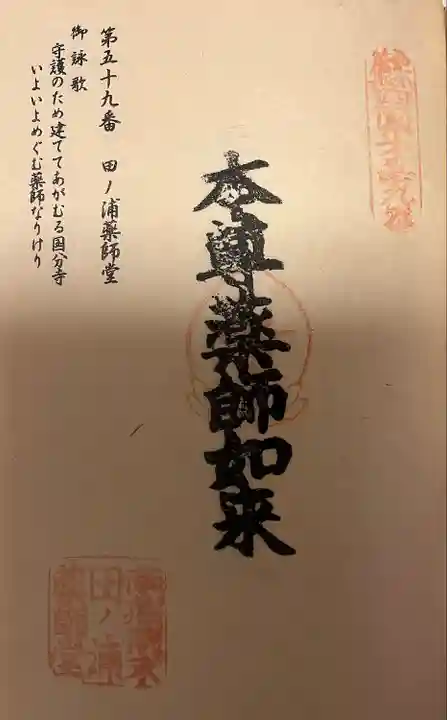 第五十九番 田ノ浦薬師堂
御詠歌
守護のため建ててあがむる国分寺
いよいよめぐむ薬師なりけり
本尊薬師如来
田ノ浦
薬師堂